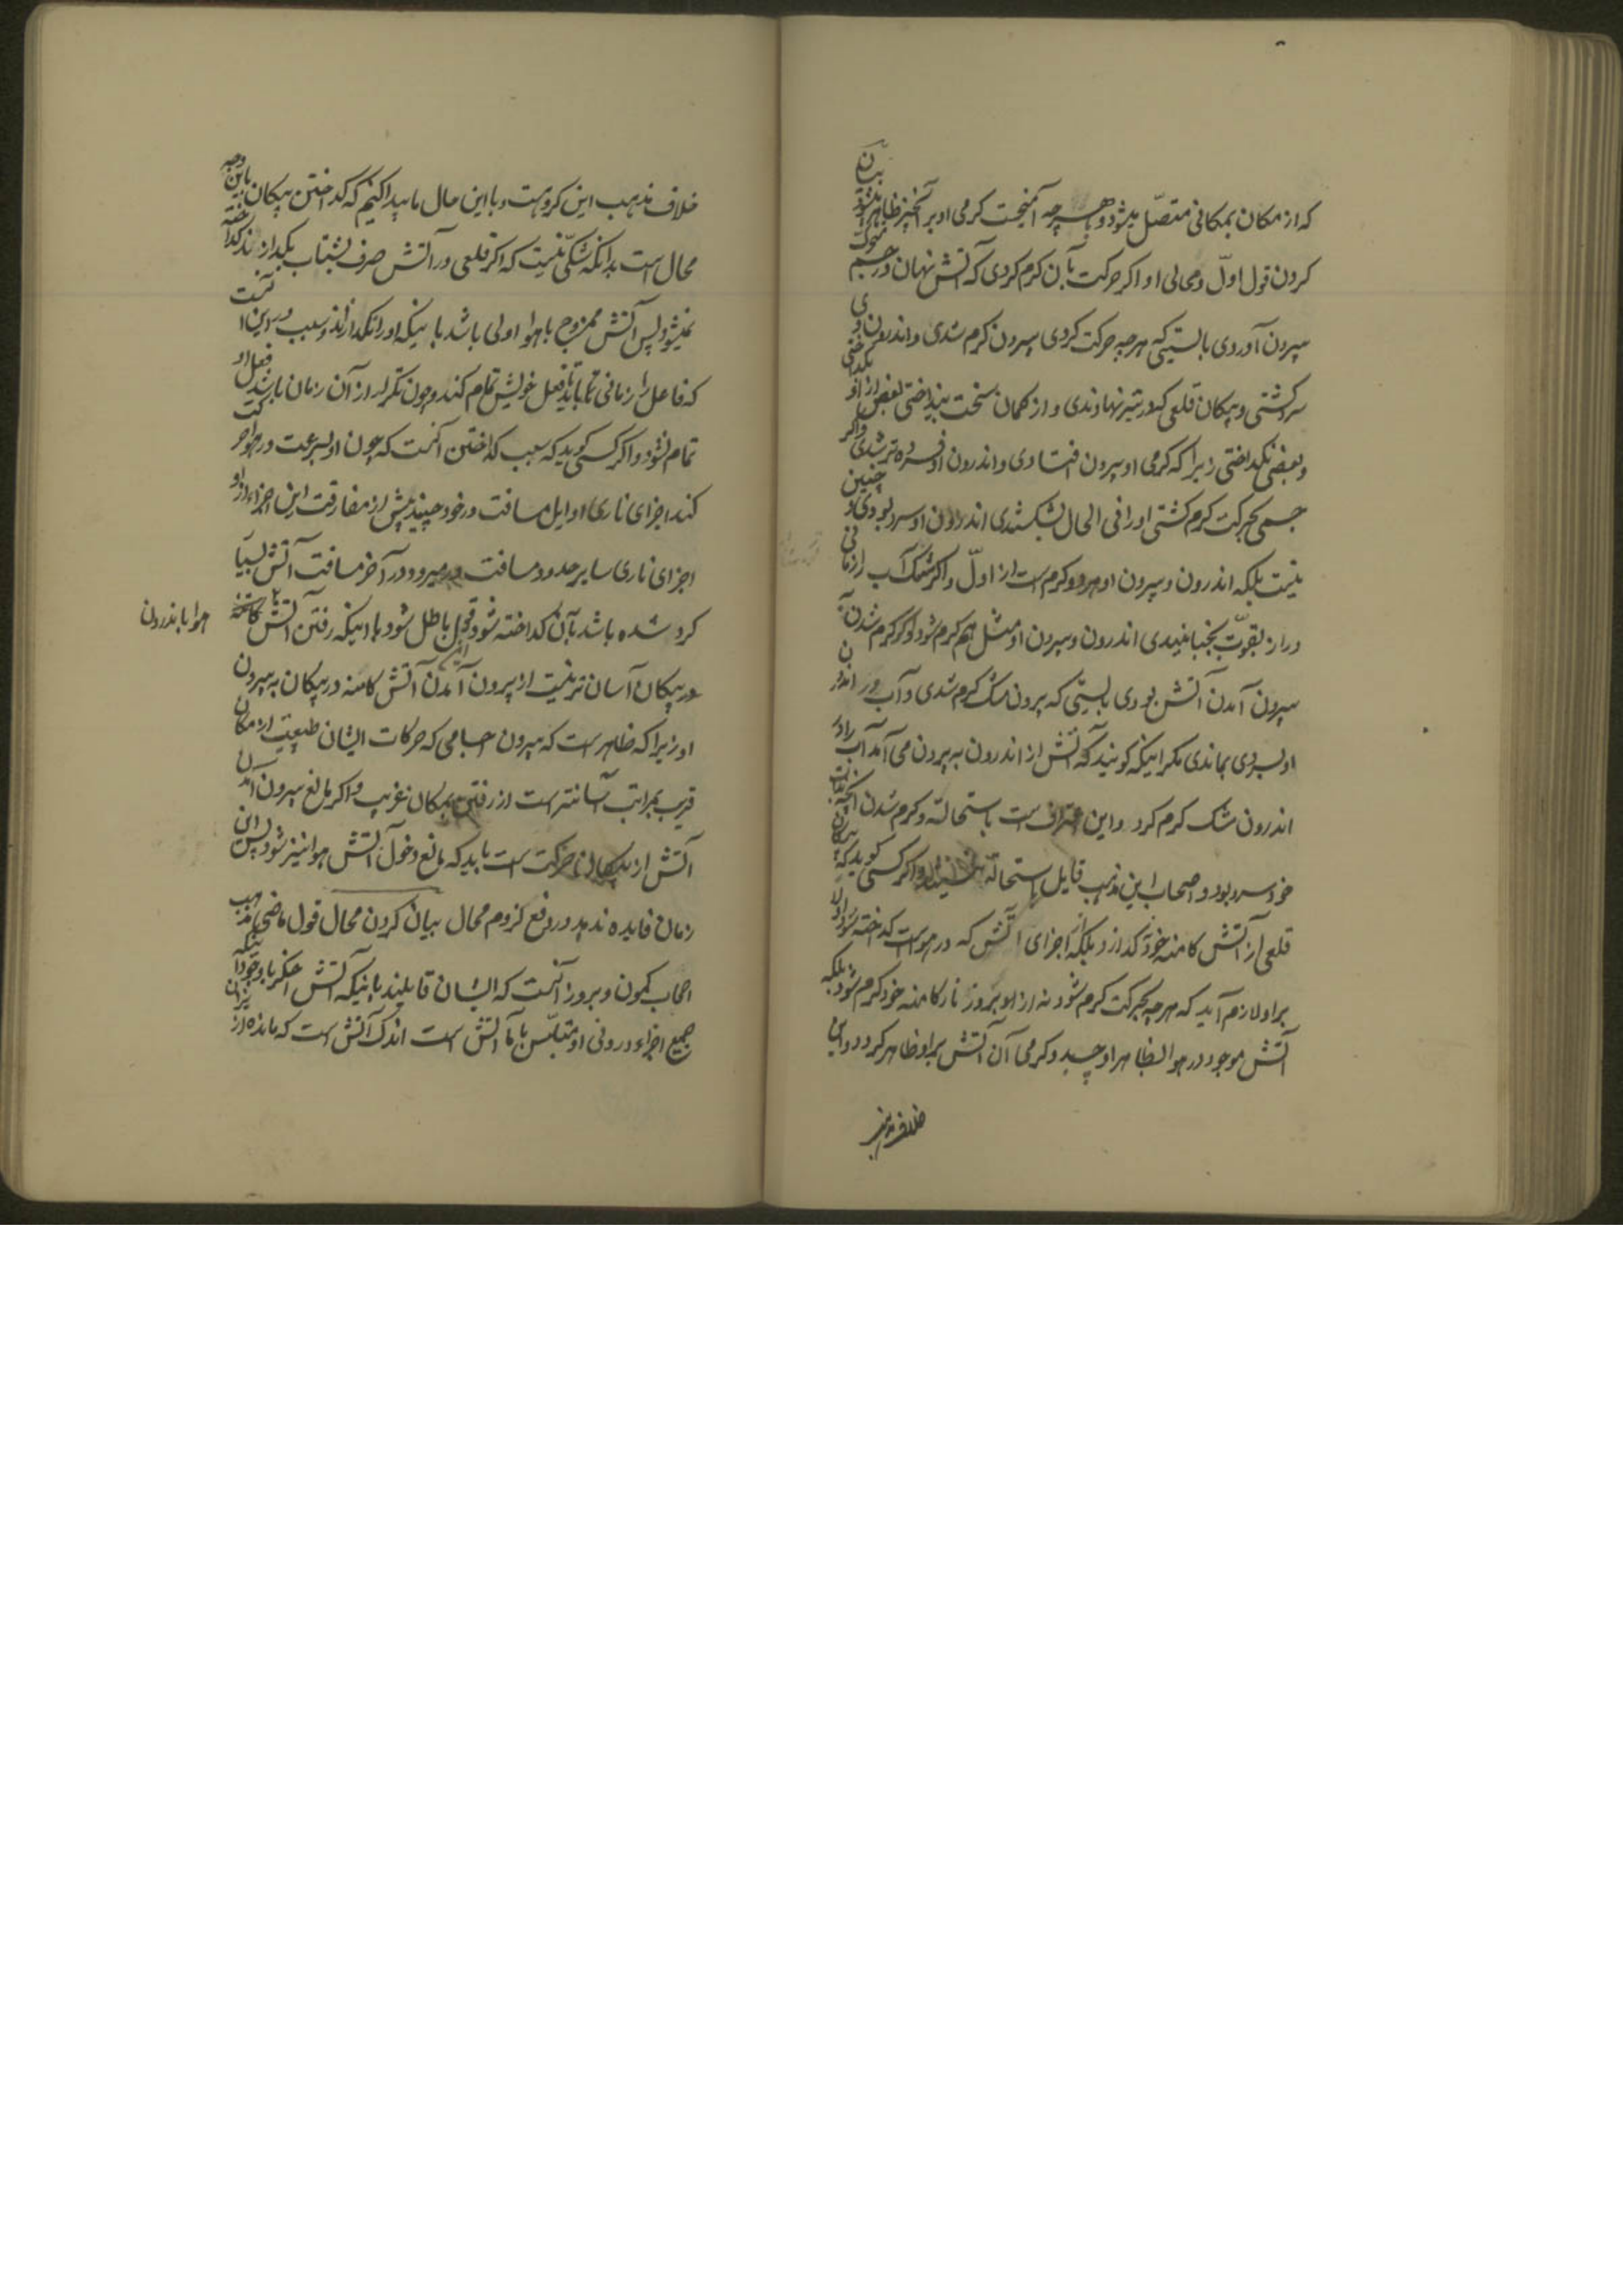 که از مکان بمکانی متصل میشود و بهرچه آمیخت گرمی او بر آنچیز ظاهر میشود بیان
کردن قول اول و محالی او اگر حرکت بآن گرم کردی که آتش نهان در جسم متحرک
بیرون آوردی بایستی که هرچه حرکت کردی بیرون گرم شدی و اندرون وی
سرد گشتی و پیکان قلعی که در تیر نهادندی و از کمان سخت بینداختی بعضی از او بگداختی
و بعضی نگداختی زیرا که گرمی او بیرون افتادی و اندرون او فسرده تر شدی و اگر
جسمی بحرکت گرم گشتی او را فی الحال بشکستندی اندرون او سرد بودی و چنین
نیست بلکه اندرون و بیرون او هر دو گرم است از اول و اگر مشک آب را زمانی
دراز بقوت بجنبانیدی اندرون و بیرون او مثل هم گرم شود و اگر گرم شدن به
بیرون آمدن آتش بودی بایستی که بیرون مشک گرم شدی و آب در اندرون
او بسردی بماندی مگر اینکه گویند که آتش از اندرون به بیرون می آمد آب را در
اندرون مشک گرم کرد و این اعتراف است باستحاله و گرم شدن آنچه بذات
خود سرد بود و اصحاب این مذهب قایل باستحاله نیستند و اگر کسی گوید که پیکان
قلعی از آتش کامنه خود نگدازد بلکه از اجزای آتش که در هواست گداخته شود اولا
بر او لازم آید که هرچه بحرکت گرم شود نه از او بروز نار کامنه خود گرم شود بلکه
آتش موجود در هوا بظاهر او چسبد و گرمی آن آتش بر او ظاهر گردد و این
خلاف مذهب
خلاف مذهب این گروهست و با این حال ما پیدا کنیم که گداختن پیکان باین وجه
محال است بدانکه شکی نیست که اگر قلعی در آتش صرف بشتاب بگذارند گداخته
نمیشود پس آتش ممزوج با هوا اولی باشد باینکه او را نگدازاند و سبب در این آنست
که فاعل را زمانی باید تا فعل خویش تمام کند و چون نگذارد از آن زمان باشد فعل او
تمام نشود و اگر کسی گوید که سبب گداختن آنست که چون او بسرعت در هوا حرکت
کند اجزای ناری اوایل مسافت در خود چیند پیش از مفارقت این اجزاء از او
اجزای ناری سایر حدود مسافت میرود در آخر مسافت آتش بسیار
گرد شده باشد بآن گداخته شود این قول باطل شود باینکه رفتن آتش کامنه هوا باندرون
در پیکان آسان تر نیست از بیرون آمدن آتش کامنه در پیکان به بیرون
او زیرا که ظاهر است که بیرون اجسامی که حرکات ایشان طبیعیت از مکان
قریب بمراتب آسانتر است از رفتن بمکان غریب و اگر مانع بیرون آمدن
آتش از پیکان حرکت است باید که مانع دخول آتش هوا نیز شود پس این
زمان فایده ندهد در رفع لزوم محال بیان کردن محال قول ماضی مذهب
اصحاب کمون و بروز آنست که ایشان قایلند باینکه آتش اخگر با وجود آنکه
جمیع اجزاء درونی او متلبس بآتش است اندک آتش است که مانده از